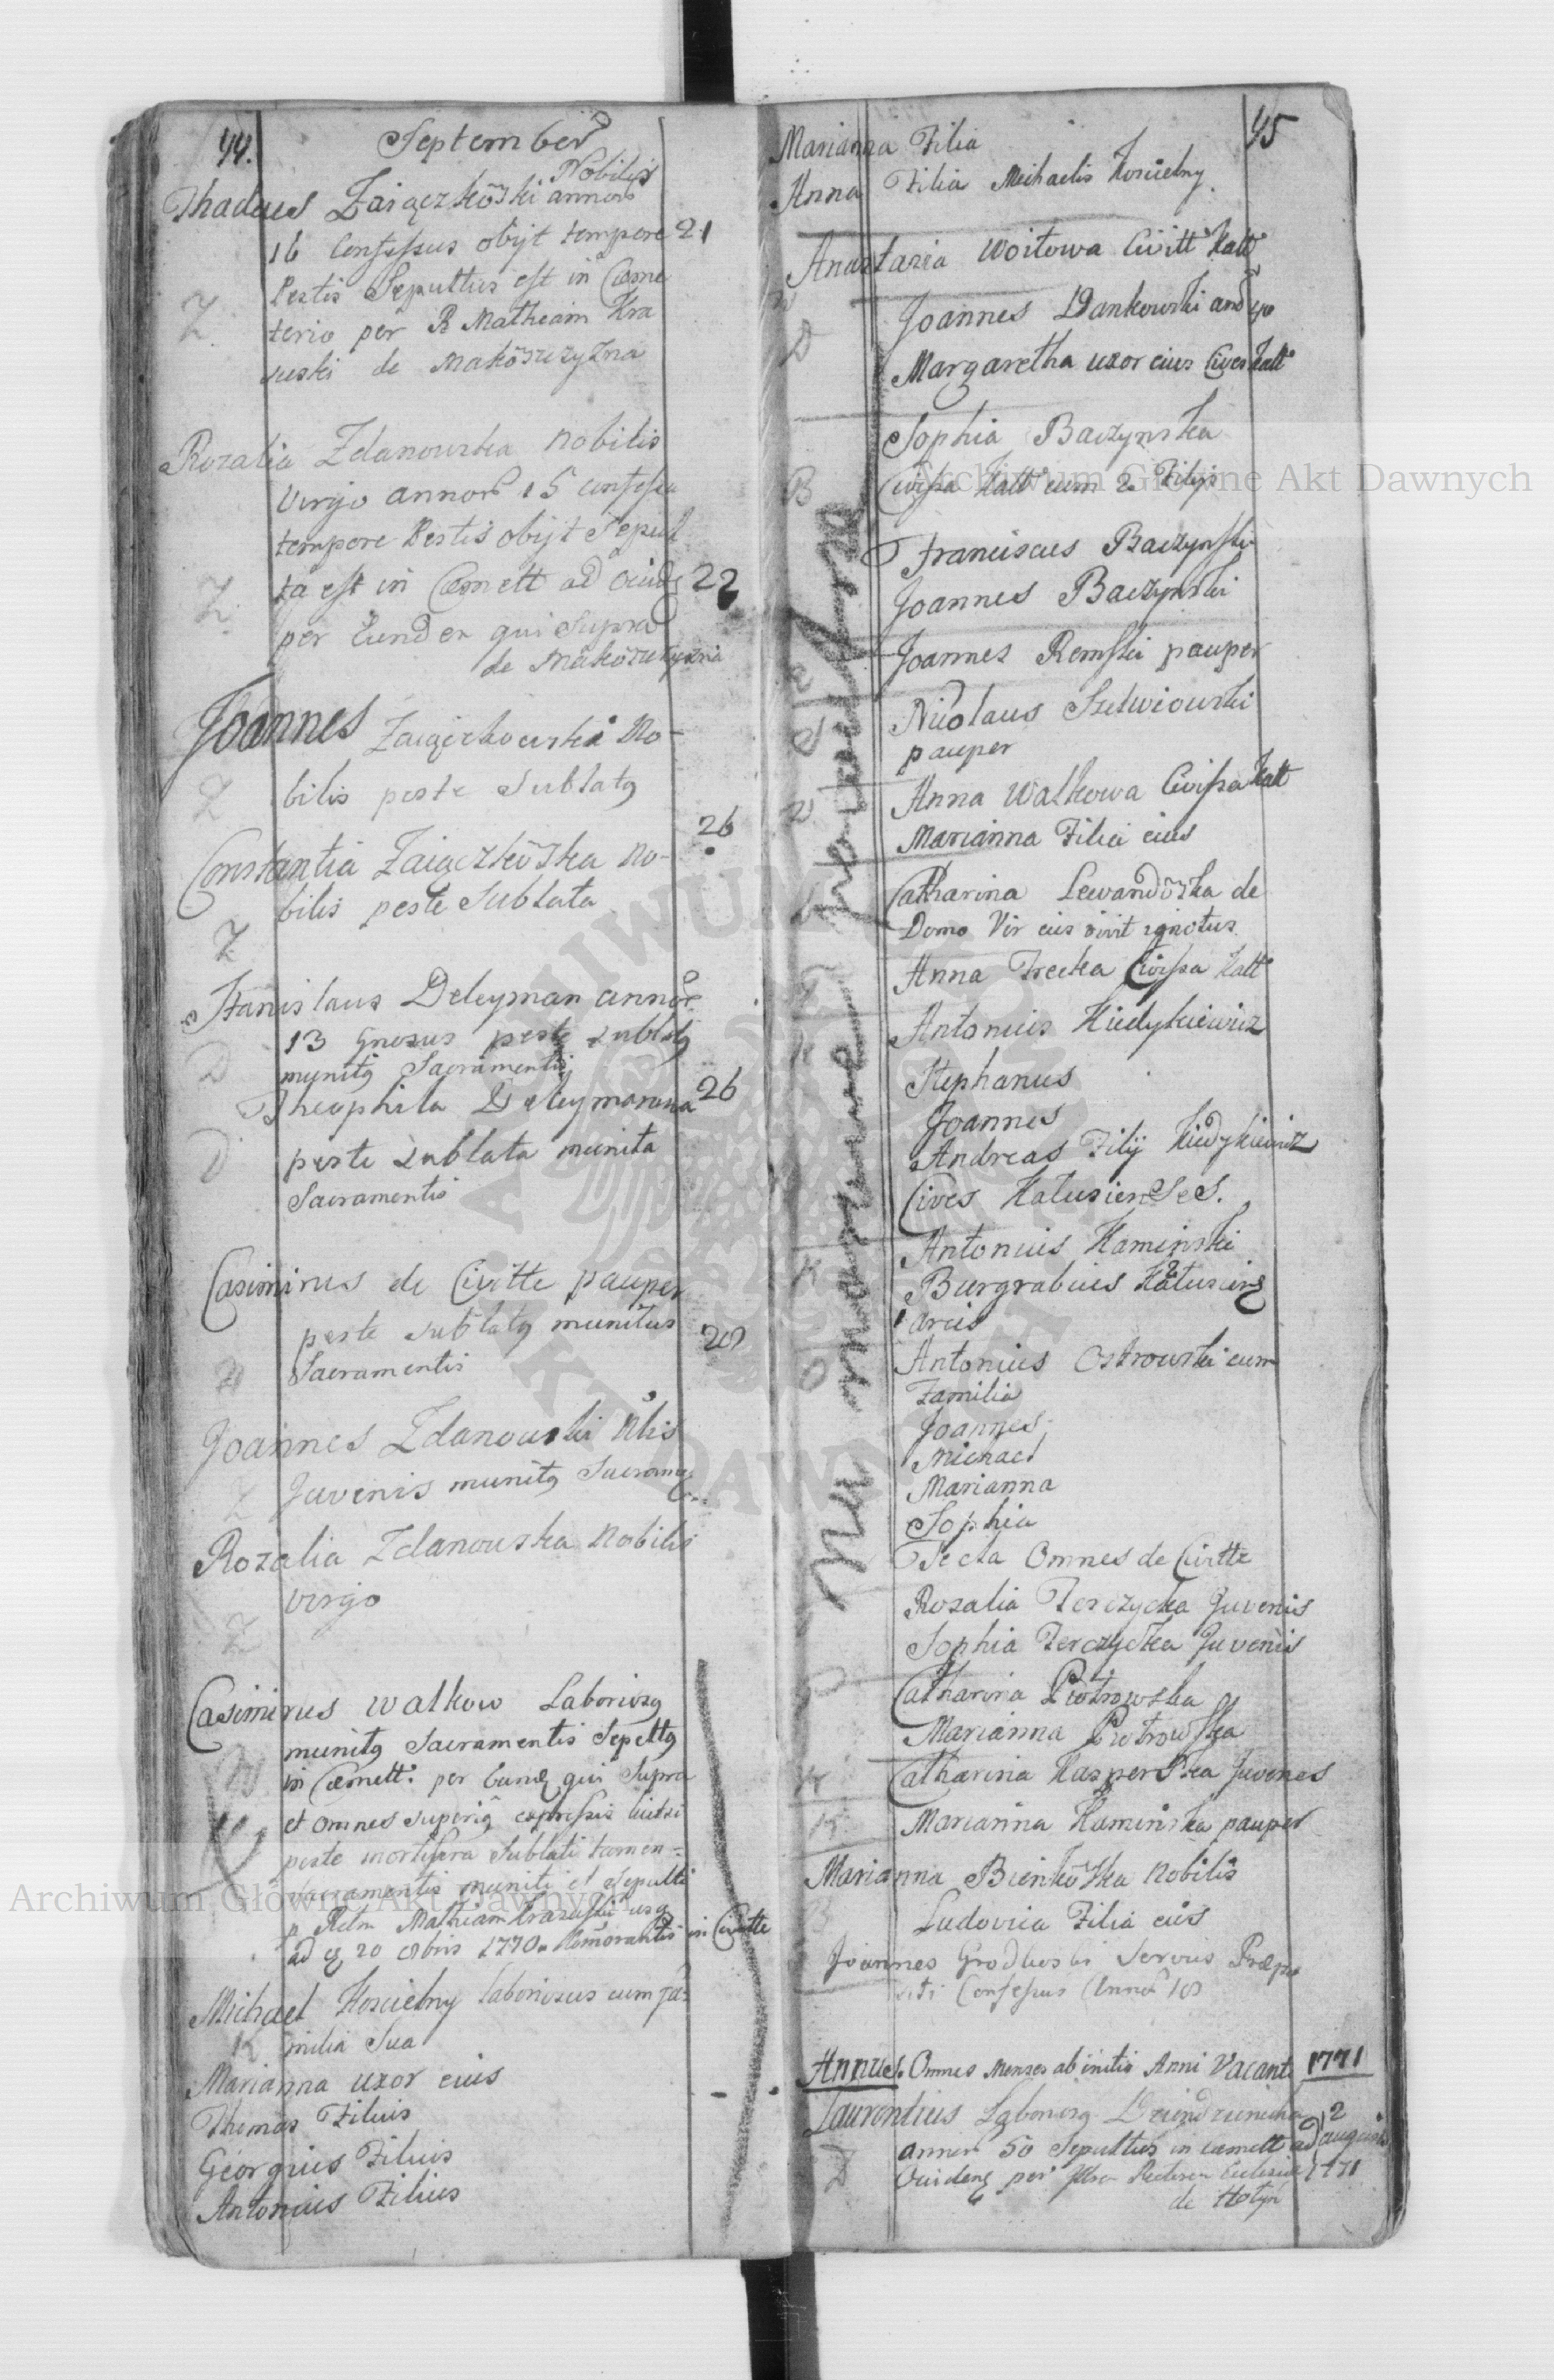 44.
September
Nobilis
Thadeus Zaiączkōski annor
16 Confessus obijt tempore 21
Pestis Sepultus est in Cæme
terio per R Mathiam Kra
suski de Makōszyzna
Z.
Rozalia Zdanowska Nobilis
Virgo annor 15 confessa
tempore Pestis obijt Sepul
ta est in Cæmett ad Ouidẽ 22
per Eundem qui Supra
de Makōszyzna
Z.
Joannes Zaiączkowski No-
bilis peste Sublatq
Z
26
Constantia Zaiączkōska No-
bilis peste Sublata
Z
Stanislaus Deleyman annor
13 Gnosus peste sublatq
munitq Sacramentis
D
Theophila Deleymanowna 26
peste sublata munita
Sacramentis
D
Casimirus de Civitte pauper
peste sublatq munitus 28
Sacramentis
Joannes Zdanowski Nlis
Juvenis munitq Sacram
Z
Rozalia Zdanowska Nobilis
virgo
Z
Casimirus Walkow Laboriosq
munitq Sacramentis Sepeltq
in Cæmett. per eund qui Supra
et omnes superiq expressis
peste mortifera Sublati tamen
sacramentis muniti et sepulti
p Rdm Mathiam Krasuski usq
ad 20 1770 in Civitte
Michael Koscielny laboriosus cum fa-
milia Sua
K
Marianna uxor eius
Thomas Filius
Georgius Filius
Antonius Filius
45
Marianna Filia
Anna Filia Michaelis Koscielny
Anastazia Woitowa Civitt Kall
W
Joannes Dankowski
Margaretha uxor eius Cives Kall
D
Sophia Baczynska
Civissa Kall cum 2 Filijs
B
Franciscus Baczynski
Joannes Baczynski
Joannes Remski pauper
R
Nicolaus Szelwiowski
pauper
S
Anna Walkowa Civissa Kall
Marianna Filia eius
W
Catharina Lewandōska de
Domo Vir eius vivit ignotus
L
Anna Trecka Civissa Kall
Antonius Kiedykiewicz
K
Stephanus
Joannes
Andreas Filij Kiedykiewicz
Cives Kalusienses.
Antonius Kaminski
Burgrabius Kalusien
arcis
K
Antonius Ostrowski cum
Familia
O
Joannes
Michael
Marianna
Sophia
Tecla Omnes de Civtte
Rosalia Perczycka Juvenis
Sophia Perczycka Juvenis
Catharina Piotrowska
Marianna Piotrowska
P
Catharina Kasperska Juvenes
K
Marianna Kaminska pauper
K
Marianna Bienkōska Nobilis
Ludovica Filia eius
B
Joannes Grodhoski Servus Præpo
siti Confessus Annor 18
Annus. Omnes Menses ab initio Anni Vacant. 1771
Laurentius Laboriosq
annor 50 Sepultus in cæmett ad 2 augusti
Ouidenq per Rectorem Ecclesiæ 1771
de Hotyn
D
Archiwum Główne Akt Dawnych
Archiwum Główne Akt Dawnych
ARCHIWUM GŁÓWNE AKT DAWNYCH